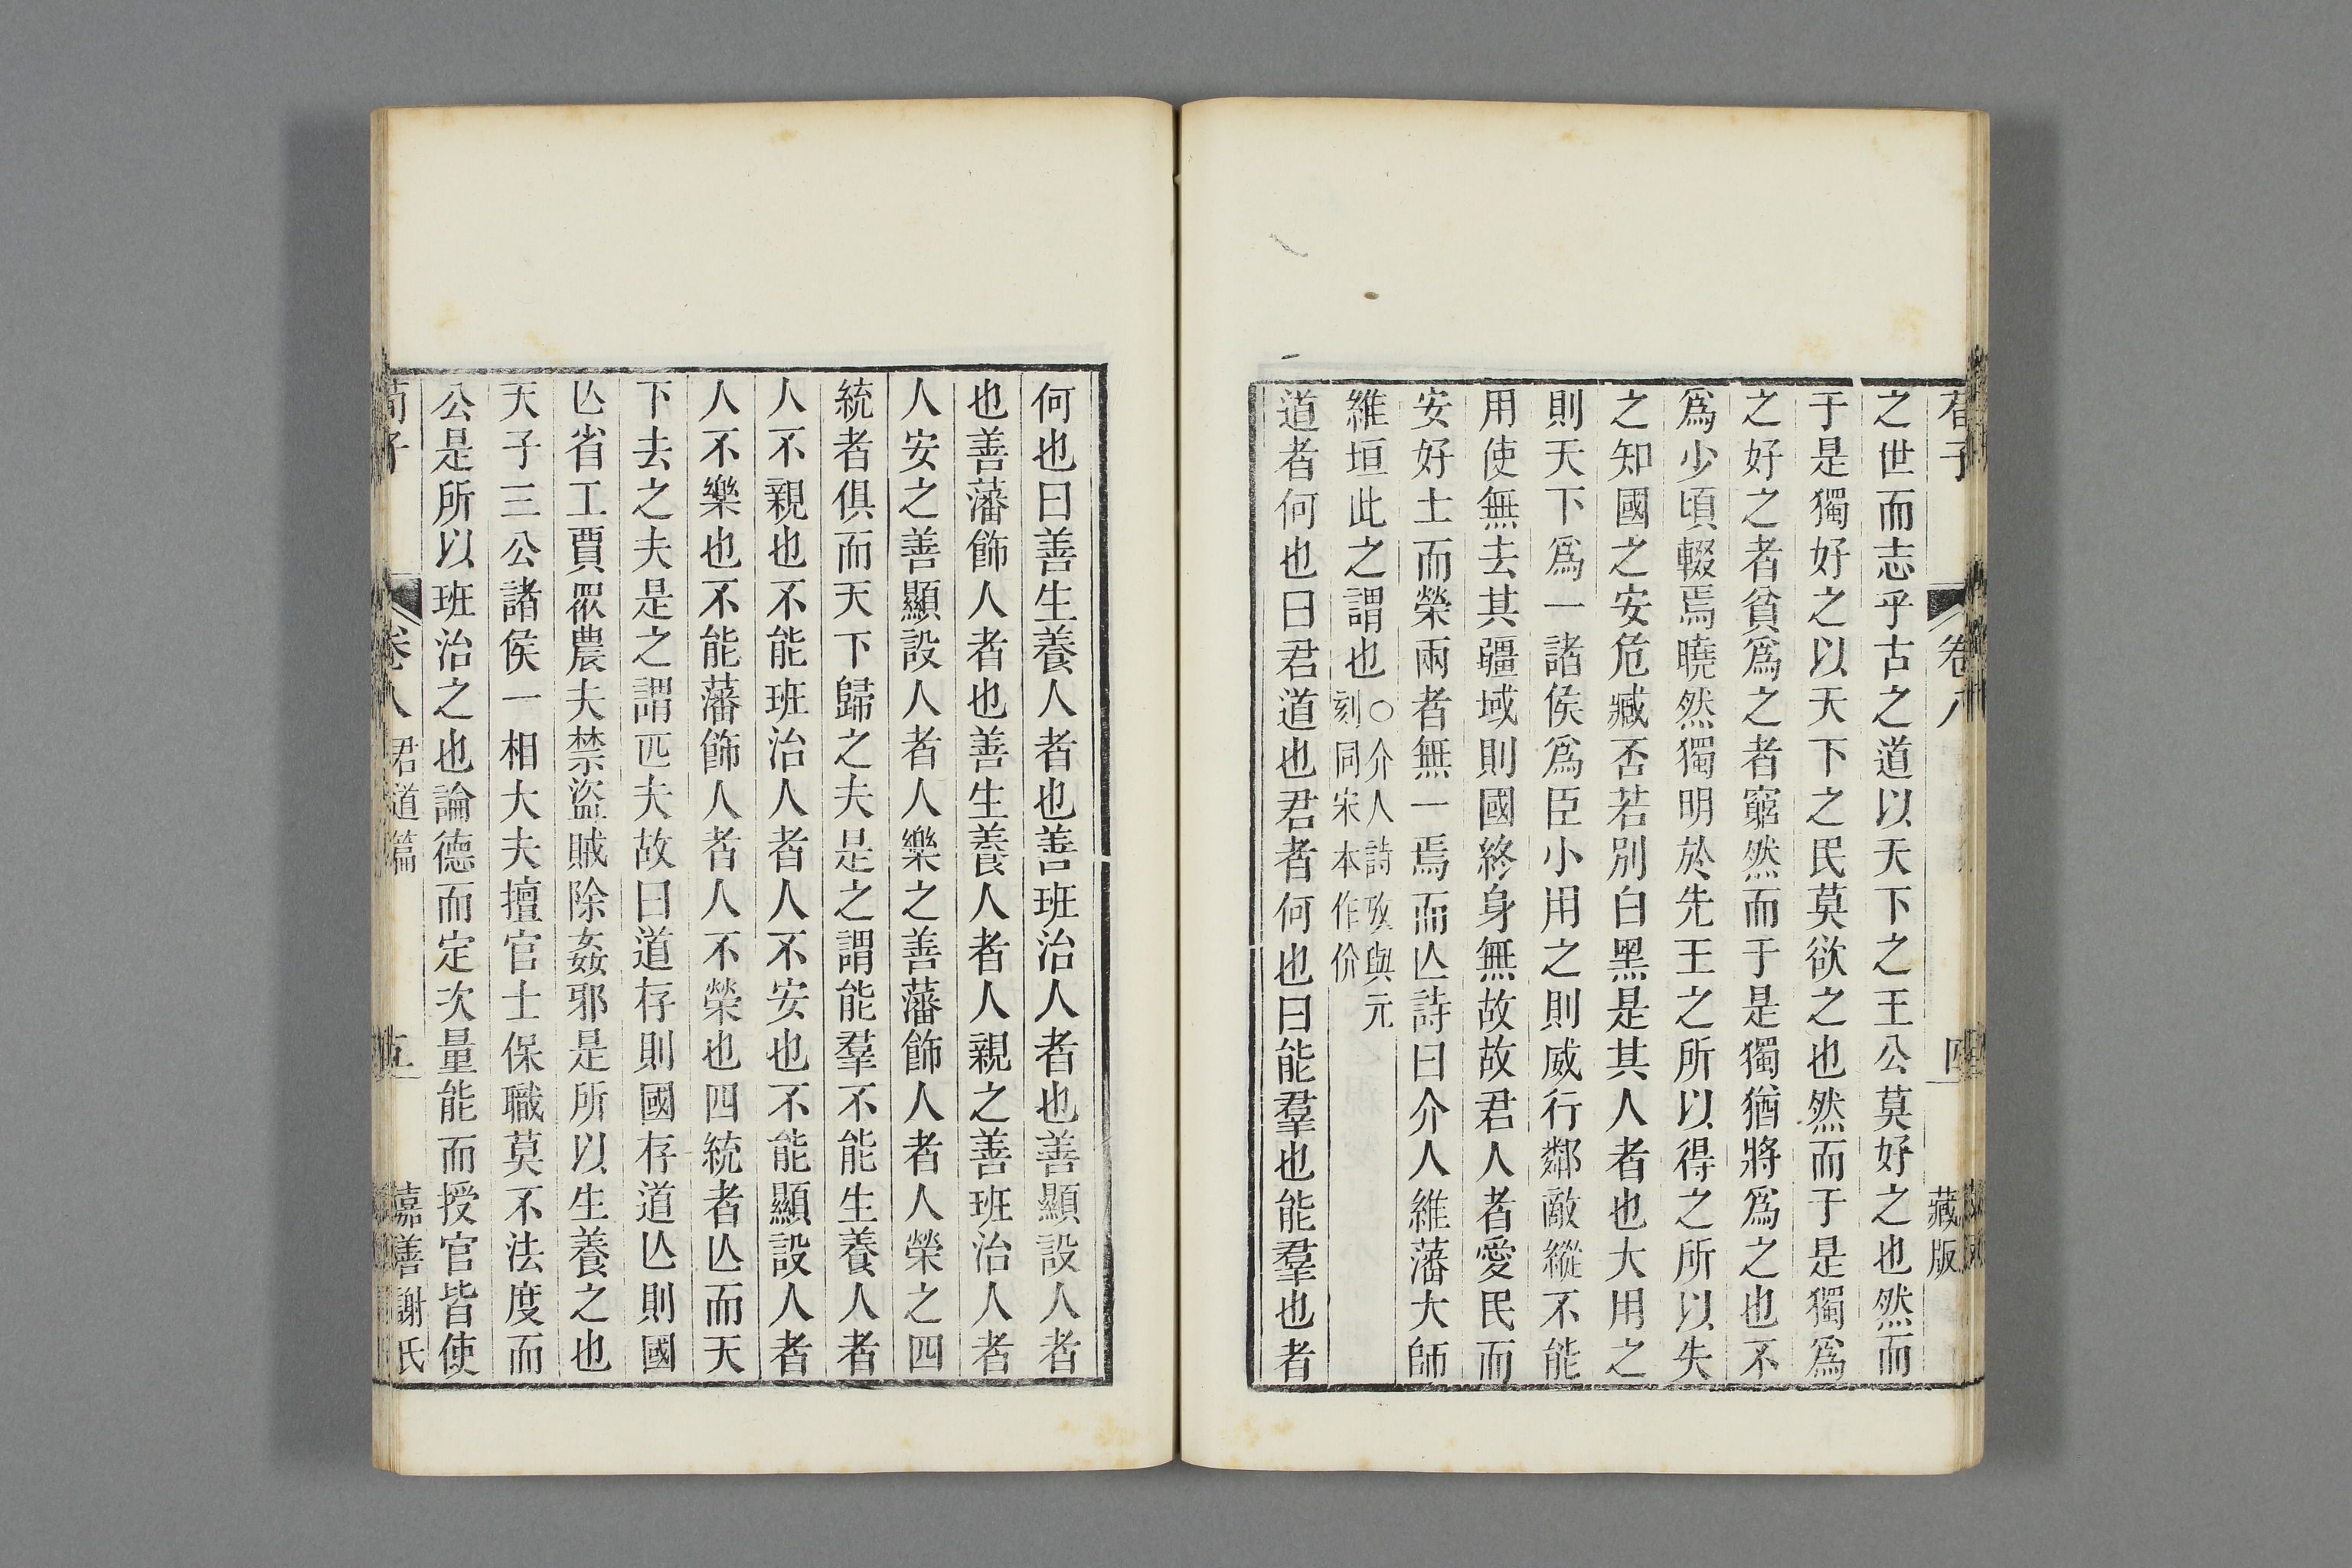 荀子 卷八 四 藏版
之世而志乎古之道以天下之王公莫好之也然而
于是獨好之以天下之民莫欲之也然而于是獨爲
之好之者貧爲之者窮然而于是獨猶將爲之也不
爲少頃輟焉曉然獨明於先王之所以得之所以失
之知國之安危臧否若別白黑是其人者也大用之
則天下爲一諸侯爲臣小用之則威行鄰敵縱不能
用使無去其疆域則國終身無故故君人者愛民而
安好士而榮兩者無一焉而亾詩曰介人維藩大師
維垣此之謂也○介人詩攷與元
刻同宋本作价
道者何也曰君道也君者何也曰能羣也能羣也者
何也曰善生養人者也善班治人者也善顯設人者
也善藩飾人者也善生養人者人親之善班治人者
人安之善顯設人者人樂之善藩飾人者人榮之四
統者俱而天下歸之夫是之謂能羣不能生養人者
人不親也不能班治人者人不安也不能顯設人者
人不樂也不能藩飾人者人不榮也四統者亾而天
下去之夫是之謂匹夫故曰道存則國存道亾則國
亾省工賈眾農夫禁盜賊除姦邪是所以生養之也
天子三公諸侯一相大夫擅官士保職莫不法度而
公是所以班治之也論德而定次量能而授官皆使
荀子 卷八 君道篇 五 嘉善謝氏